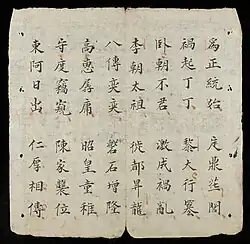 為正統始 定鼎華閭
禍起丁丁 黎大行篡
卧朝不君 激成禍亂
李朝太祖 徙都昇龍
八傳奕奕 磐石增隆
高惠孱庸 昭皇童稚
守度竊窺 陳家襲位
東阿日出 仁厚相傳